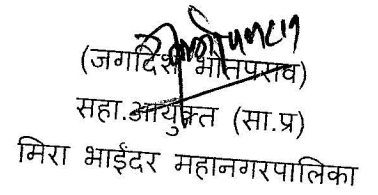 (जगदिश भोतपराव)
सहा.आयुक्त (सा.प्र)
मिरा भाईंदर महानगरपालिका